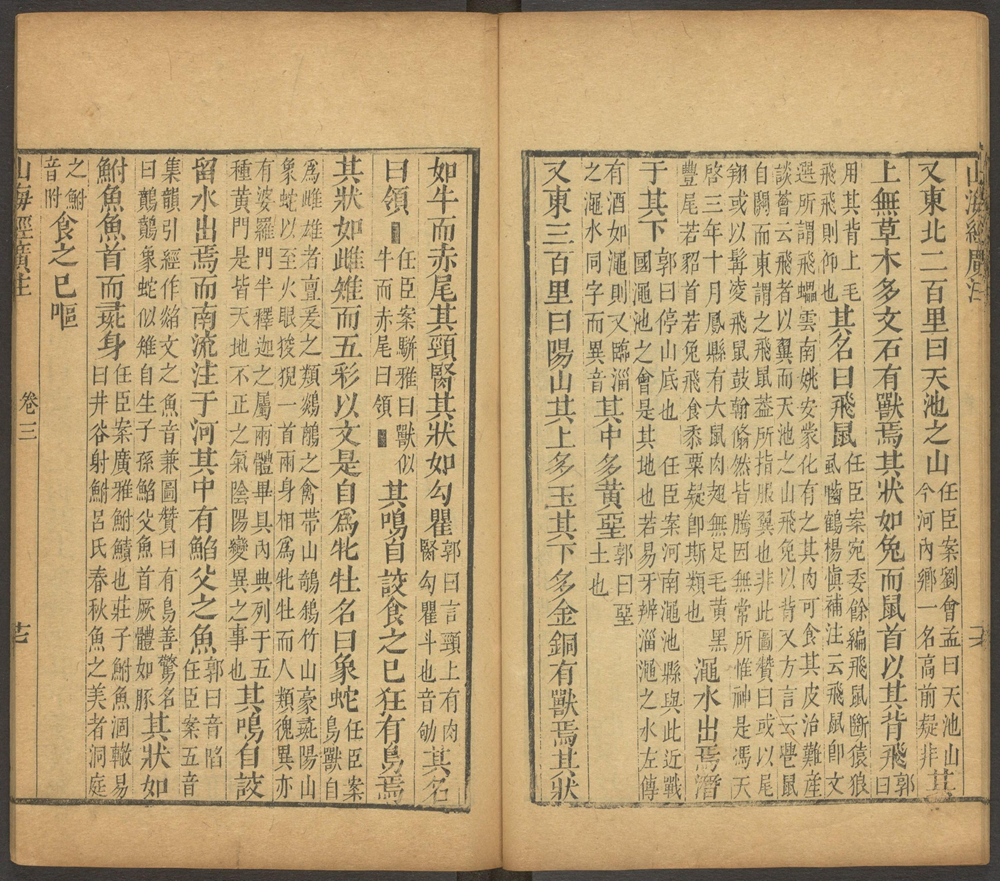 山海經廣注
又東北二百里曰天池之山任臣案劉會孟曰天池山今河內鄉一名高前疑非其
上無草木多文石有獸焉其狀如兔而鼠首以其背飛郭曰
用其背上毛飛飛則仰也其名曰飛鼠任臣案宛委餘編飛鼠斷猿狼虱嚙鶴楊慎補注云飛鼠即文
選所謂飛蠝雲南姚安蒙化有之其肉可食其皮治難産
談薈云飛者以翼而天池之山飛兔以背又方言云㠪鼠
自關而東謂之飛鼠葢所指服翼也非此圖贊曰或以尾
翔或以髯凌飛鼠鼓翰翛然皆騰因無常所惟神是馮天
啓三年十月鳳縣有大鼠肉翅無足毛黃黑豐尾若貂首若兔飛食黍粟疑卽斯類也澠水出焉潛
于其下郭曰停山底也　任臣案河南澠池縣與此近戰國澠池之會是其地也若易牙辨淄澠之水左傳
有酒如澠則又臨淄之澠水同字而異音其中多黃堊郭曰堊土也
又東三百里曰陽山其上多玉其下多金銅有獸焉其狀
如牛而赤尾其頸䐹其狀如勾瞿郭曰言頸上有肉䐹勾瞿斗也音劬其名
曰領任臣案駢雅曰獸似牛而赤尾曰領其鳴自詨食之已狂有鳥焉
其狀如雌雉而五彩以文是自爲牝牡名曰象蛇任臣案鳥獸自
爲雌雄者亶爰之類鷂鶹之禽帶山鵸鵌竹山豪彘陽山
象蛇以至火眼狻猊一首兩身相爲牝牡而人類傀異亦
有婆羅門半釋迦之屬兩體畢具內典列于五種黃門是皆天地不正之氣陰陽變異之事也其鳴自詨
留水出焉而南流注于河其中有䱤父之魚郭曰音陷任臣案五音
集韻引經作䱤文之魚音兼圖贊曰有鳥善驚名曰鷾鷾象蛇似雉自生子孫䱤父魚首厥體如豚其狀如
鮒魚魚首而彘身任臣案廣雅鮒鱝也莊子鮒魚涸轍易曰井谷射鮒呂氏春秋魚之美者洞庭
之鮒音附食之已嘔
山海經廣注　卷三